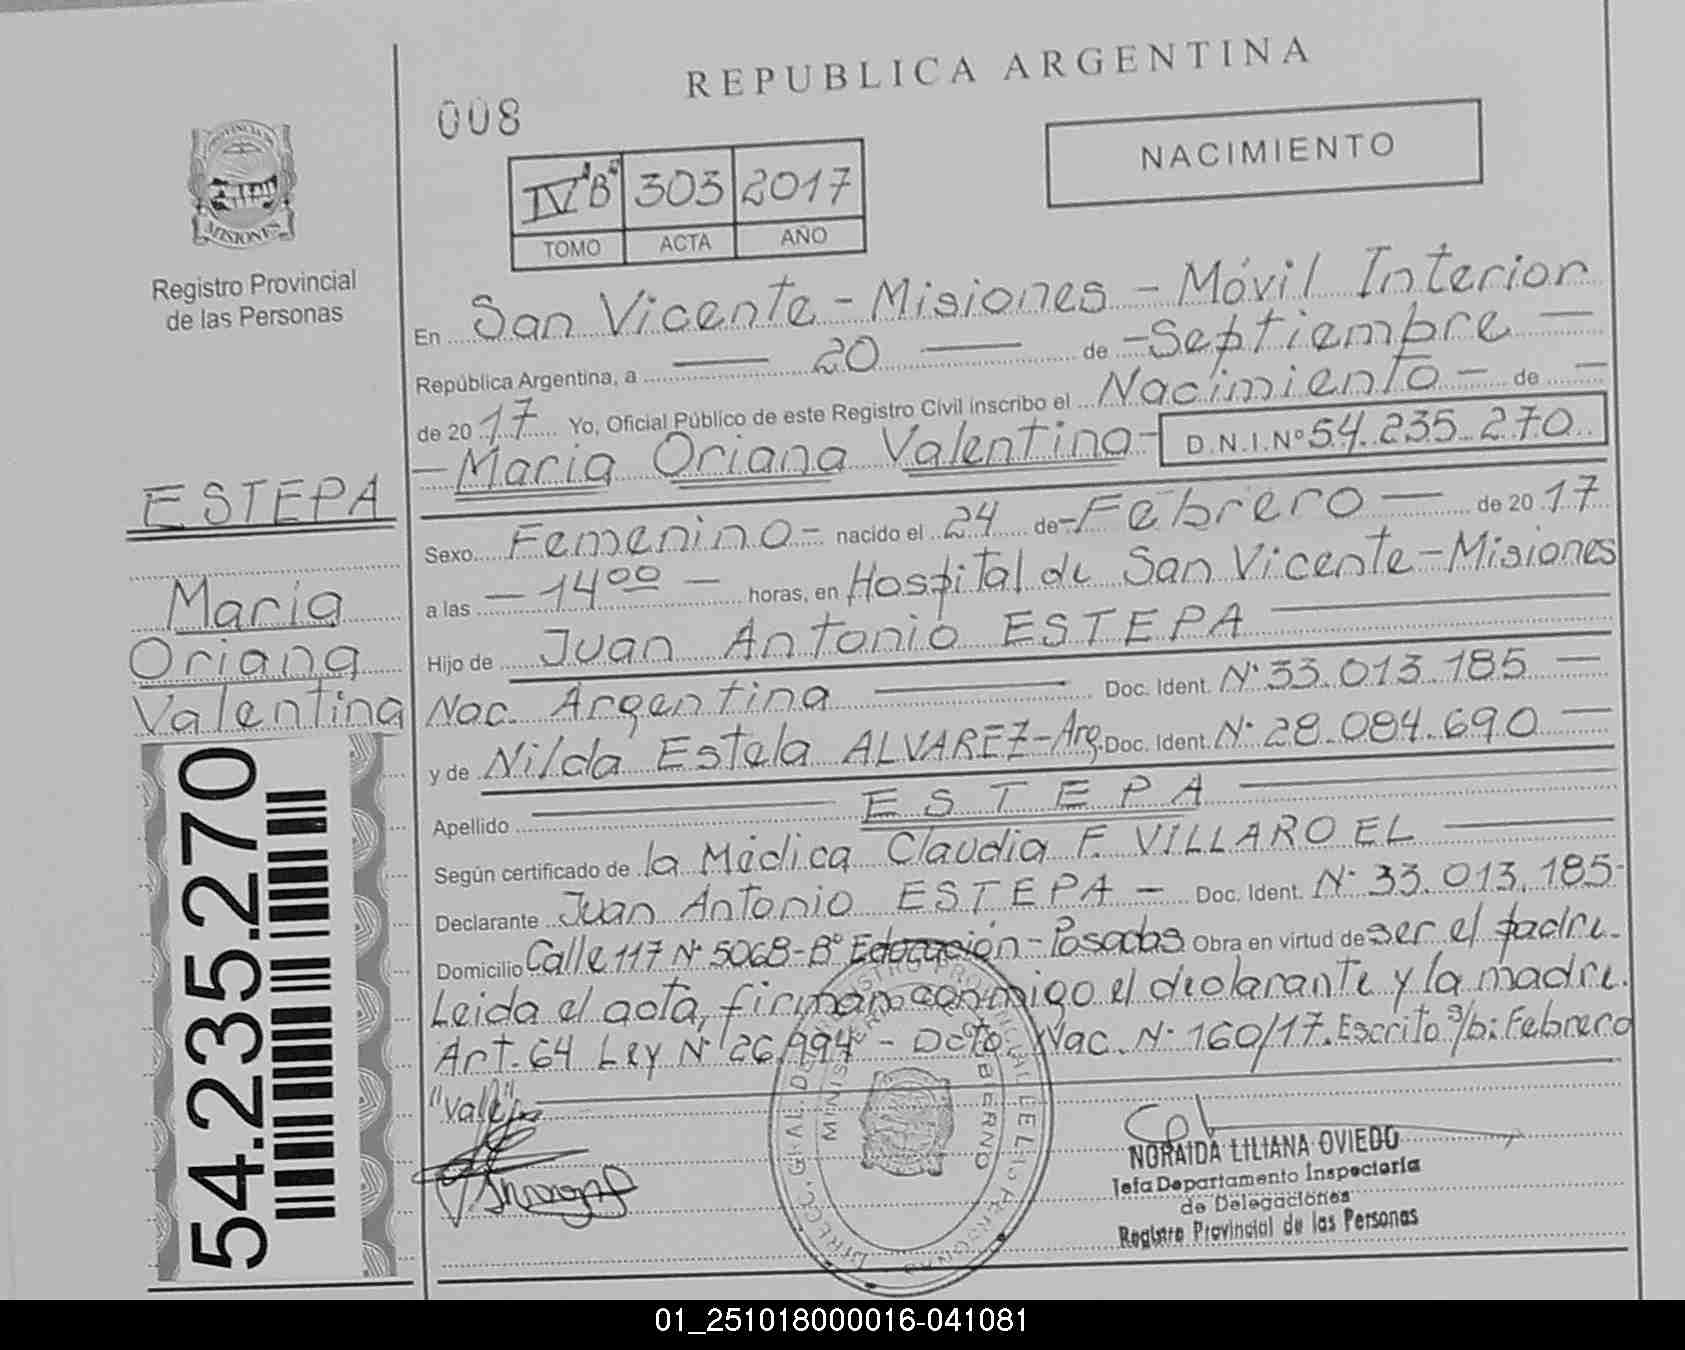 REPUBLICA ARGENTINA
008
NACIMIENTO
PROVINCIA DE
MISIONES
Registro Provincial
de las Personas
IV "B" 303 2017
TOMO ACTA AÑO
En San Vicente - Misiones - Móvil Interior
República Argentina, a — 20 — de - Septiembre —
de 2017 Yo, Oficial Público de este Registro Civil inscribo el Nacimiento - de —
- Maria Oriana Valentina - D.N.I.Nº 54.235.270
ESTEPA
Maria
Oriana
Valentina
54.235.270
Sexo Femenino - nacido el 24 de - Febrero — de 2017
a las - 14 00 - horas, en Hospital de San Vicente - Misiones
Hijo de Juan Antonio ESTEPA
Nac. Argentina — Doc. Ident. Nº 33.013.185 —
y de Nilda Estela ALVAREZ - Arg. Doc. Ident. Nº 28.084.690 —
Apellido — ESTEPA —
Según certificado de la Médica Claudia F. VILLAROEL —
Declarante Juan Antonio ESTEPA - Doc. Ident. Nº 33.013.185-
Domicilio Calle 117 Nº 5068 - Bº Educación - Posadas Obra en virtud de ser el padre.
Leida el acta, firman conmigo el declarante y la madre.
Art. 64 Ley Nº 26.994 - Dcto. Nac. Nº 160/17. Escrito s/b: Febrero
"vale"
NORAIDA LILIANA OVIEDO
Jefa Departamento Inspectoria
de Delegaciones
Registro Provincial de las Personas
DIRECC. GRAL. DEL REGISTRO PROVINCIAL DE LAS PERSONAS
MINISTERIO DE GOBIERNO
01_251018000016-041081